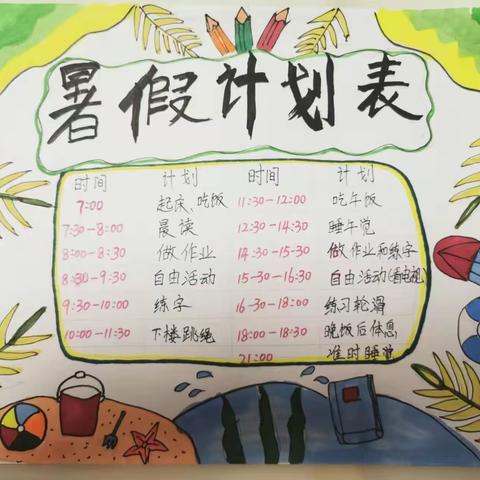 暑假计划表
时间 计划 时间 计划
7:00 起床、吃饭 11:30-12:00 吃午饭
7:30-8:00 晨读 12:30-14:30 睡午觉
8:00-8:30 做作业 14:30-15:30 做作业和练字
8:30-9:30 自由活动 15:30-16:30 自由活动(看电视)
9:30-10:00 练字 16:30-18:00 练习轮滑
10:00-11:30 下楼跳绳 18:00-18:30 晚饭后休息
21:00 准时睡觉